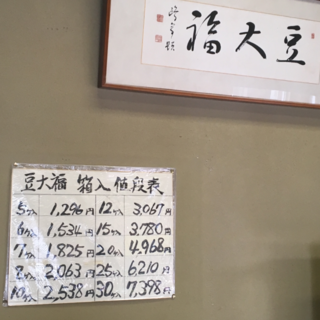 豆大福
豆大福 箱入 値段表
5ケ入 1,296円 12ケ入 3,067円
6ケ入 1,534円 15ケ入 3,780円
7ケ入 1,825円 20ケ入 4,968円
8ケ入 2,063円 25ケ入 6,210円
10ケ入 2,538円 30ケ入 7,398円